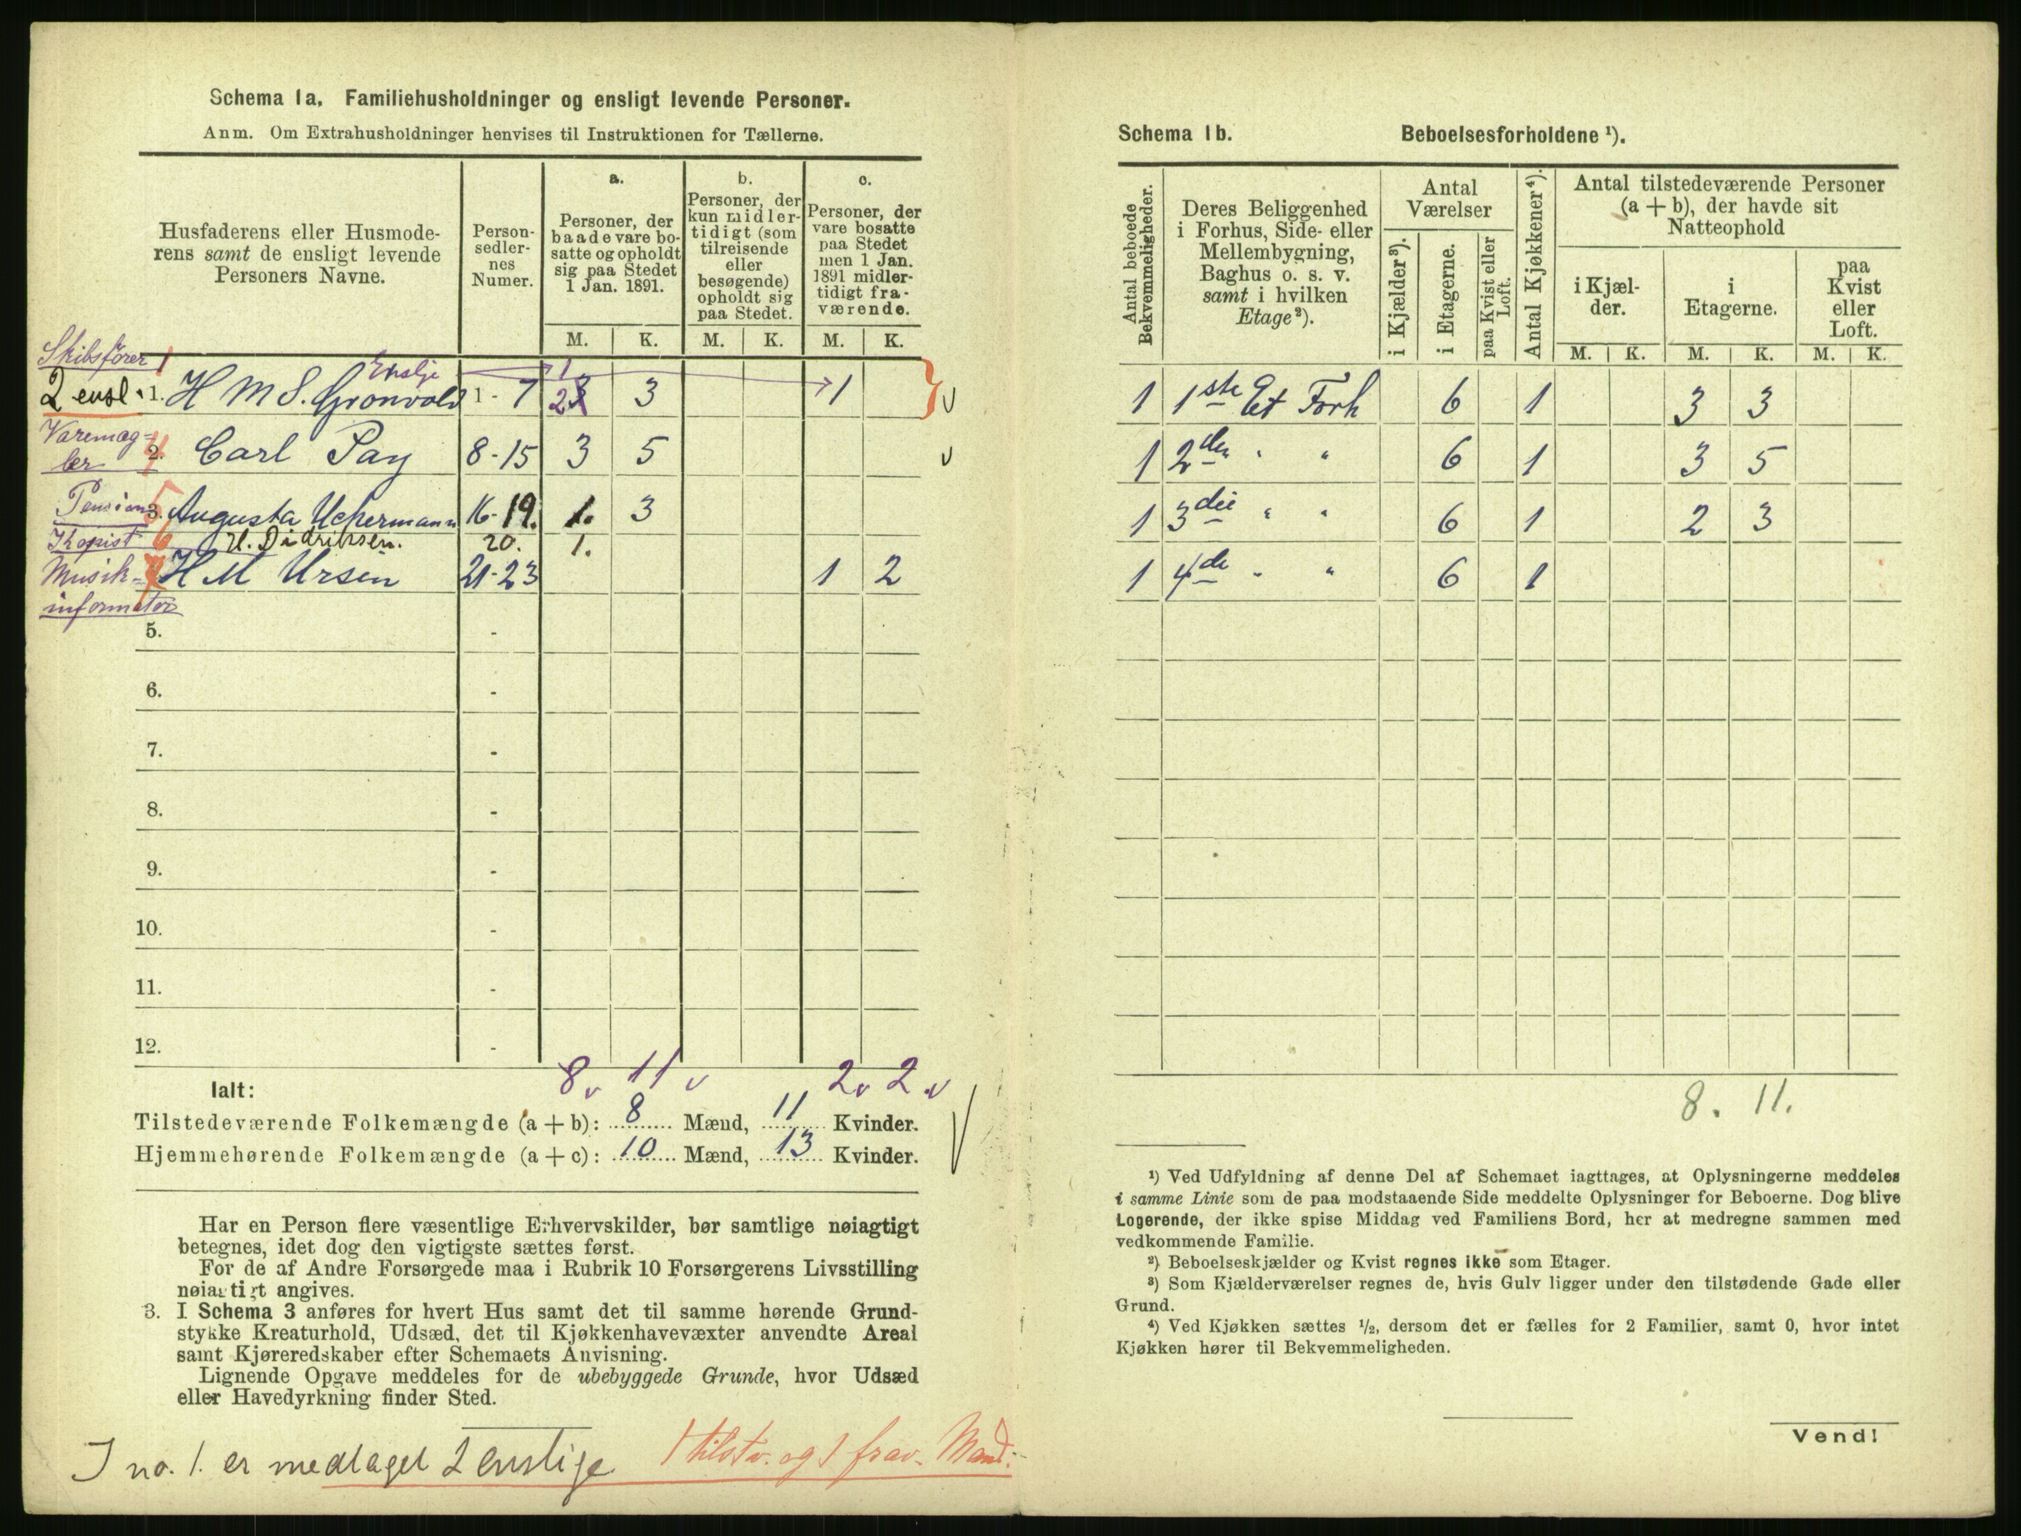 Schema 1a. Familiehusholdninger og ensligt levende Personer.
Anm. Om Extrahusholdninger henvises til Instruktionen for Tællerne.
Husfaderens eller Husmode-
rens samt de ensligt levende
Personers Navne.
Person-
sedler-
nes
Numer.
a.
Personer, der
baade vare bo-
satte og opholdt
sig paa Stedet
1 Jan. 1891.
b.
Personer, der
kun midler-
tidigt (som
tilreisende
eller
besøgende)
opholdt sig
paa Stedet.
c.
Personer, der
vare bosatte
paa Stedet
men 1 Jan.
1891 midler-
tidigt fra-
værende.
M. K. M. K. M. K.
Skibsfører 1 Enslje 1
2 ensl. 1. H M S. Gronvold 1 - 7 2 3 1 v
Varemæg-
ler 2. Carl Pay 8 - 15 3 5 v
Pension 3. Augusta Uckermann 16 - 19. 1. 3
Kopist 6 H. Didriksen. 20. 1.
Musik- H M Ursin 21 - 23 1 2
informator
5. -
6. -
7. -
8. -
9. -
10. -
11. -
12. -
8 v 11 v 2 v 2 v
Ialt:
Tilstedeværende Folkemængde (a + b): 8 Mænd, 11 Kvinder.
Hjemmehørende Folkemængde (a + c): 10 Mænd, 13 Kvinder.
Har en Person flere væsentlige Erhvervskilder, bør samtlige nøiagtigt
betegnes, idet dog den vigtigste sættes først.
For de af Andre Forsørgede maa i Rubrik 10 Forsørgerens Livsstilling
nøiagtigt angives.
3. I Schema 3 anføres for hvert Hus samt det til samme hørende Grund-
stykke Kreaturhold, Udsæd, det til Kjøkkenhavevæxter anvendte Areal
samt Kjøreredskaber efter Schemaets Anvisning.
Lignende Opgave meddeles for de ubebyggede Grunde, hvor Udsæd
eller Havedyrkning finder Sted.
I no. 1. er medtaget 2 enslige 1 tilstv. og 1 frav. Mand.
Schema 1b. Beboelsesforholdene ¹).
Antal beboede
Bekvemmeligheder.
Deres Beliggenhed
i Forhus, Side- eller
Mellembygning,
Baghus o. s. v.
samt i hvilken
Etage ²).
Antal
Værelser
i Kjælder ³).
i Etagerne.
paa Kvist eller
Loft.
Antal Kjøkkener ⁴).
Antal tilstedeværende Personer
(a + b), der havde sit
Natteophold
i Kjæl-
der.
i
Etagerne.
paa
Kvist
eller
Loft.
M. K. M. K. M. K.
1 1ste Et Forh 6 1 3 3
1 2den " " 6 1 3 5
1 3die " " 6 1 2 3
1 4de " " 6 1
8. 11.
¹) Ved Udfyldning af denne Del af Schemaet iagttages, at Oplysningerne meddeles
i samme Linie som de paa modstaaende Side meddelte Oplysninger for Beboerne. Dog blive
Logerende, der ikke spise Middag ved Familiens Bord, her at medregne sammen med
vedkommende Familie.
²) Beboelseskjælder og Kvist regnes ikke som Etager.
³) Som Kjælderværelser regnes de, hvis Gulv ligger under den tilstødende Gade eller
Grund.
⁴) Ved Kjøkken sættes ½, dersom det er fælles for 2 Familier, samt 0, hvor intet
Kjøkken hører til Bekvemmeligheden.
Vend!